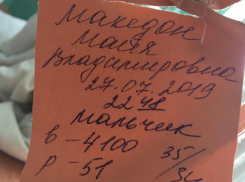 Македон
Мария
Владимировна
27.07.2019
22 48
мальчик
в - 4100 35/34
р - 51